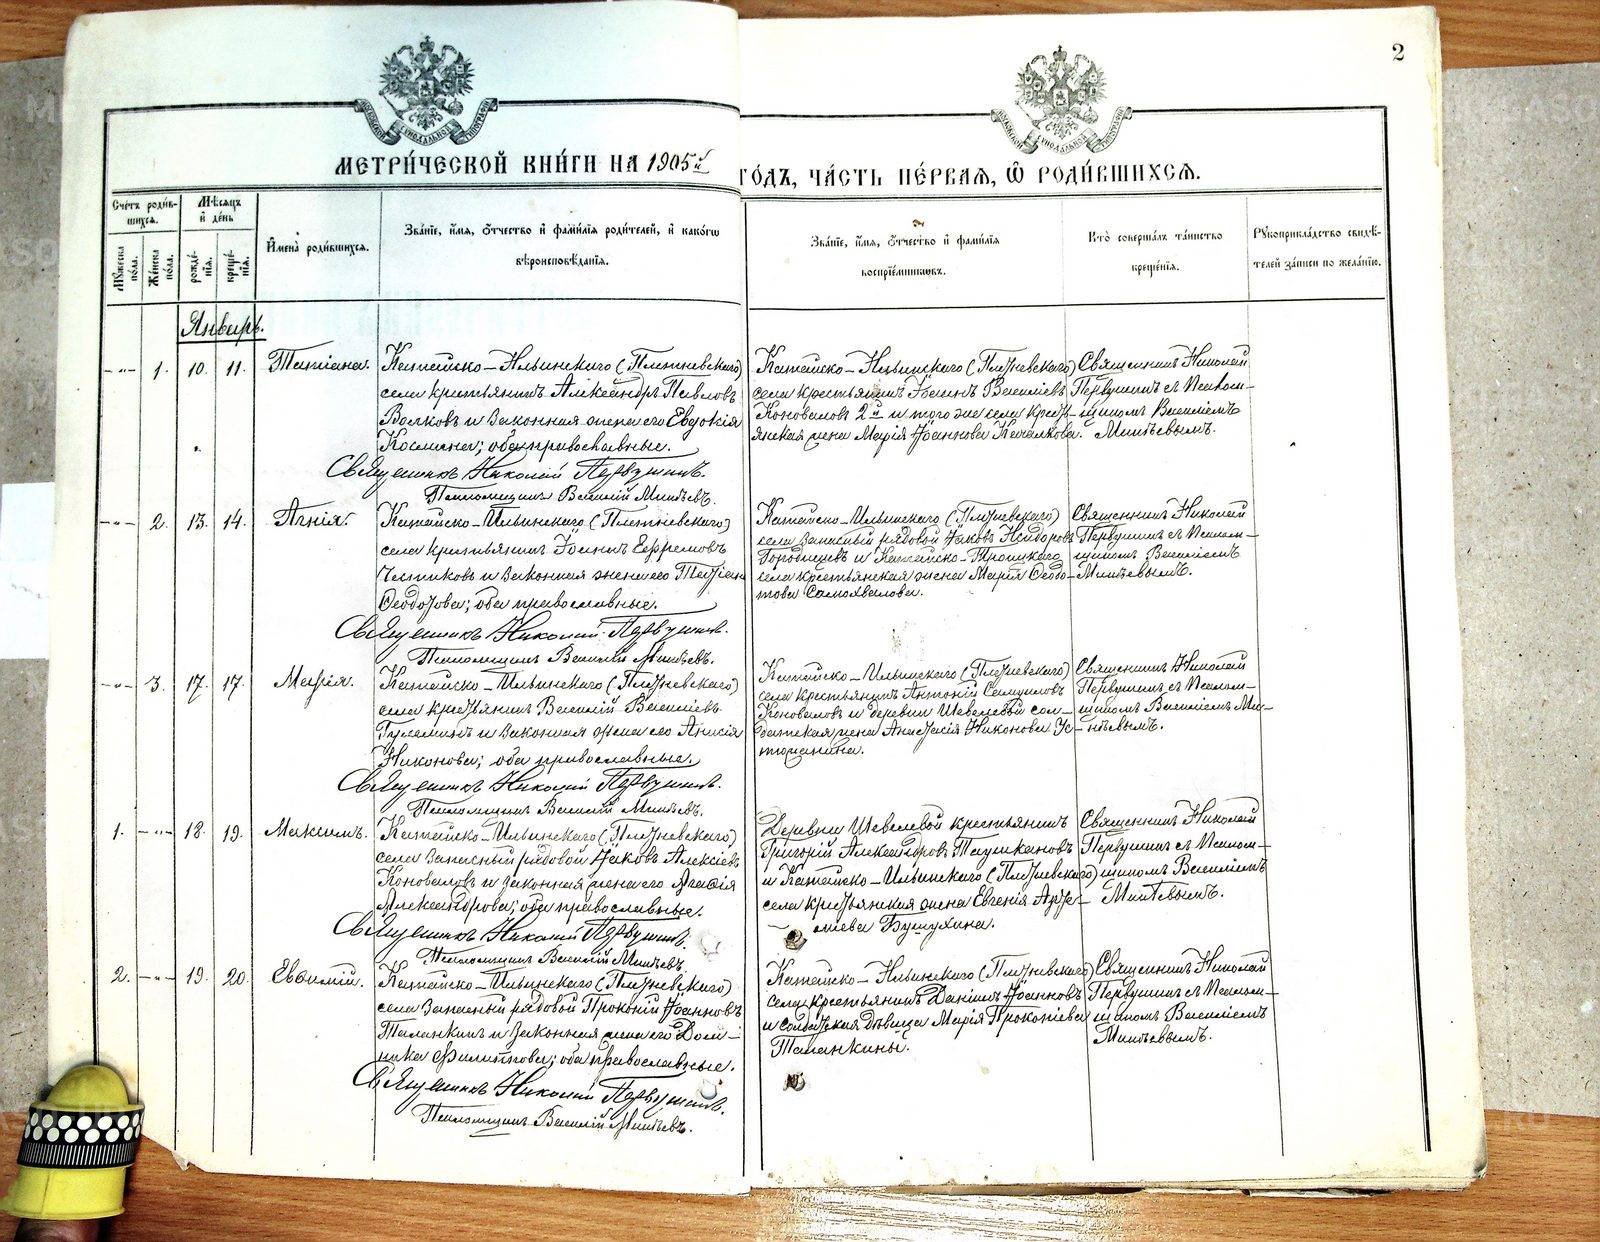 2
МЕТРИ́ЧЕСКОЙ КНИ́ГИ НА 1905й
ГО́ДЪ, ЧА́СТЬ ПЕ́РВАЯ, Ѿ РОДИ́ВШИХСЯ.
Сче́тъ роди́в-
шихся.
Мꙋ́жеска по́ла.
Же́нска по́ла.
Мѣ́сяцъ
и де́нь
рожде́-
нія.
креще́-
нія.
Имена̀ роди́вшихся.
Зва́ніе, и́мя, о́тчество и фами́лія роди́телей, и како́гѡ
вѣроисповѣ́данія.
Зва́ніе, и́мя, о́тчество и фами́лія
воспріе́мниковъ.
Кто̀ соверша́лъ та́инство
креще́нія.
Рꙋкоприкла́дство свидѣ́-
телей за́писи по жела́нію.
Январь.
-"- 1. 10. 11. Татіана.
Катайско-Ильинскаго (Плетневскаго)
села крестьянинъ Александръ Павловъ
Волковъ и законная жена его Евдокія
Космина; оба православные.
Священникъ Николай Первушинъ.
Псаломщикъ Василій Минѣевъ.
Катайско-Ильинскаго (Плетневскаго)
села крестьянинъ Іоаннъ Василіевъ
Коноваловъ 2й и того же села кресть-
янская жена Марія Іоаннова Качалкова.
Священникъ Николай
Первушинъ съ псалом-
щикомъ Василіемъ
Минѣевымъ.
-"- 2. 13. 14. Агнія.
Катайско-Ильинскаго (Плетневскаго)
села крестьянинъ Іоаннъ Ефремовъ
Чистяковъ и законная жена его Татіана
Ѳеодотова; оба православные.
Священникъ Николай Первушинъ.
Псаломщикъ Василій Минѣевъ.
Катайско-Ильинскаго (Плетневскаго)
села запасный рядовой Іаковъ Исидоровъ
Городищевъ и Катайско-Троицкаго
села крестьянская жена Марія Ѳеодо-
това Самохвалова.
Священникъ Николай
Первушинъ съ псалом-
щикомъ Василіемъ
Минѣевымъ.
-"- 3. 17. 17. Марія.
Катайско-Ильинскаго (Плетневскаго)
села крестьянинъ Василій Василіевъ
и законная жена его Анисія
Никонова; оба православные.
Священникъ Николай Первушинъ.
Псаломщикъ Василій Минѣевъ.
Катайско-Ильинскаго (Плетневскаго)
села крестьянинъ Антоній Самуиловъ
Коноваловъ и деревни Шевелевой сол-
датская жена Анастасія Никонова Ус-
тюжанина.
Священникъ Николай
Первушинъ съ псалом-
щикомъ Василіемъ Ми-
нѣевымъ.
1. -"- 18. 19. Максимъ.
Катайско-Ильинскаго (Плетневскаго)
села запасный рядовой Іаковъ Алексіевъ
Коноваловъ и законная жена его Агафія
Александрова; оба православные.
Священникъ Николай Первушинъ.
Псаломщикъ Василій Минѣевъ.
Деревни Шевелевой крестьянинъ
Григорій Александровъ Таушкановъ
и Катайско-Ильинскаго (Плетневскаго)
села крестьянская жена Евгенія Арте-
міева Бушухина.
Священникъ Николай
Первушинъ съ псалом-
щикомъ Василіемъ
Минѣевымъ.
2. -"- 19. 20. Евѳимій.
Катайско-Ильинскаго (Плетневскаго)
села запасный рядовой Прокопій Іоанновъ
Таланкинъ и законная жена его Дом-
ника Филиппова; оба православные.
Священникъ Николай Первушинъ.
Псаломщикъ Василій Минѣевъ.
Катайско-Ильинскаго (Плетневскаго)
села крестьянинъ Даніилъ Іоанновъ
и солдатская дѣвица Марія Прокопіева
Таланкины.
Священникъ Николай
Первушинъ съ псалом-
щикомъ Василіемъ
Минѣевымъ.